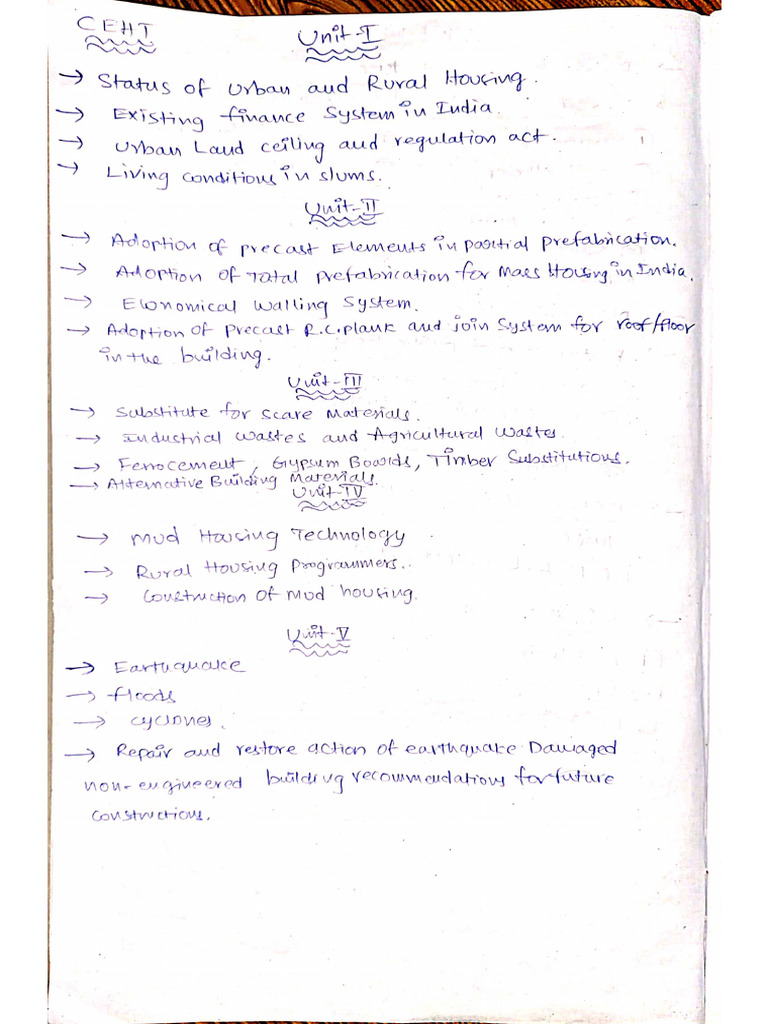 CEHT
Unit-I
→ Status of Urban and Rural Housing.
→ Existing finance System in India.
→ Urban Land ceiling and regulation act.
→ Living conditions in slums.
Unit-II
→ Adoption of Precast Elements in partial Prefabrication.
→ Adoption of Total Prefabrication for Mass Housing in India.
→ Economical Walling System.
→ Adoption of Precast R.C.plank and join System for roof/floor
in the building.
Unit-III
→ Substitute for Scare Materials.
→ Industrial Wastes and Agricultural Wastes.
→ Ferrocement, Gypsum Boards, Timber Substitutions.
→ Alternative Building Materials.
Unit-IV
→ Mud Housing Technology
→ Rural Housing Programmers.
→ Construction of Mud housing.
Unit-V
→ Earthquake
→ floods
→ cyclones.
→ Repair and restore action of earthquake Damaged
non-engineered building recommendations for future
constructions.